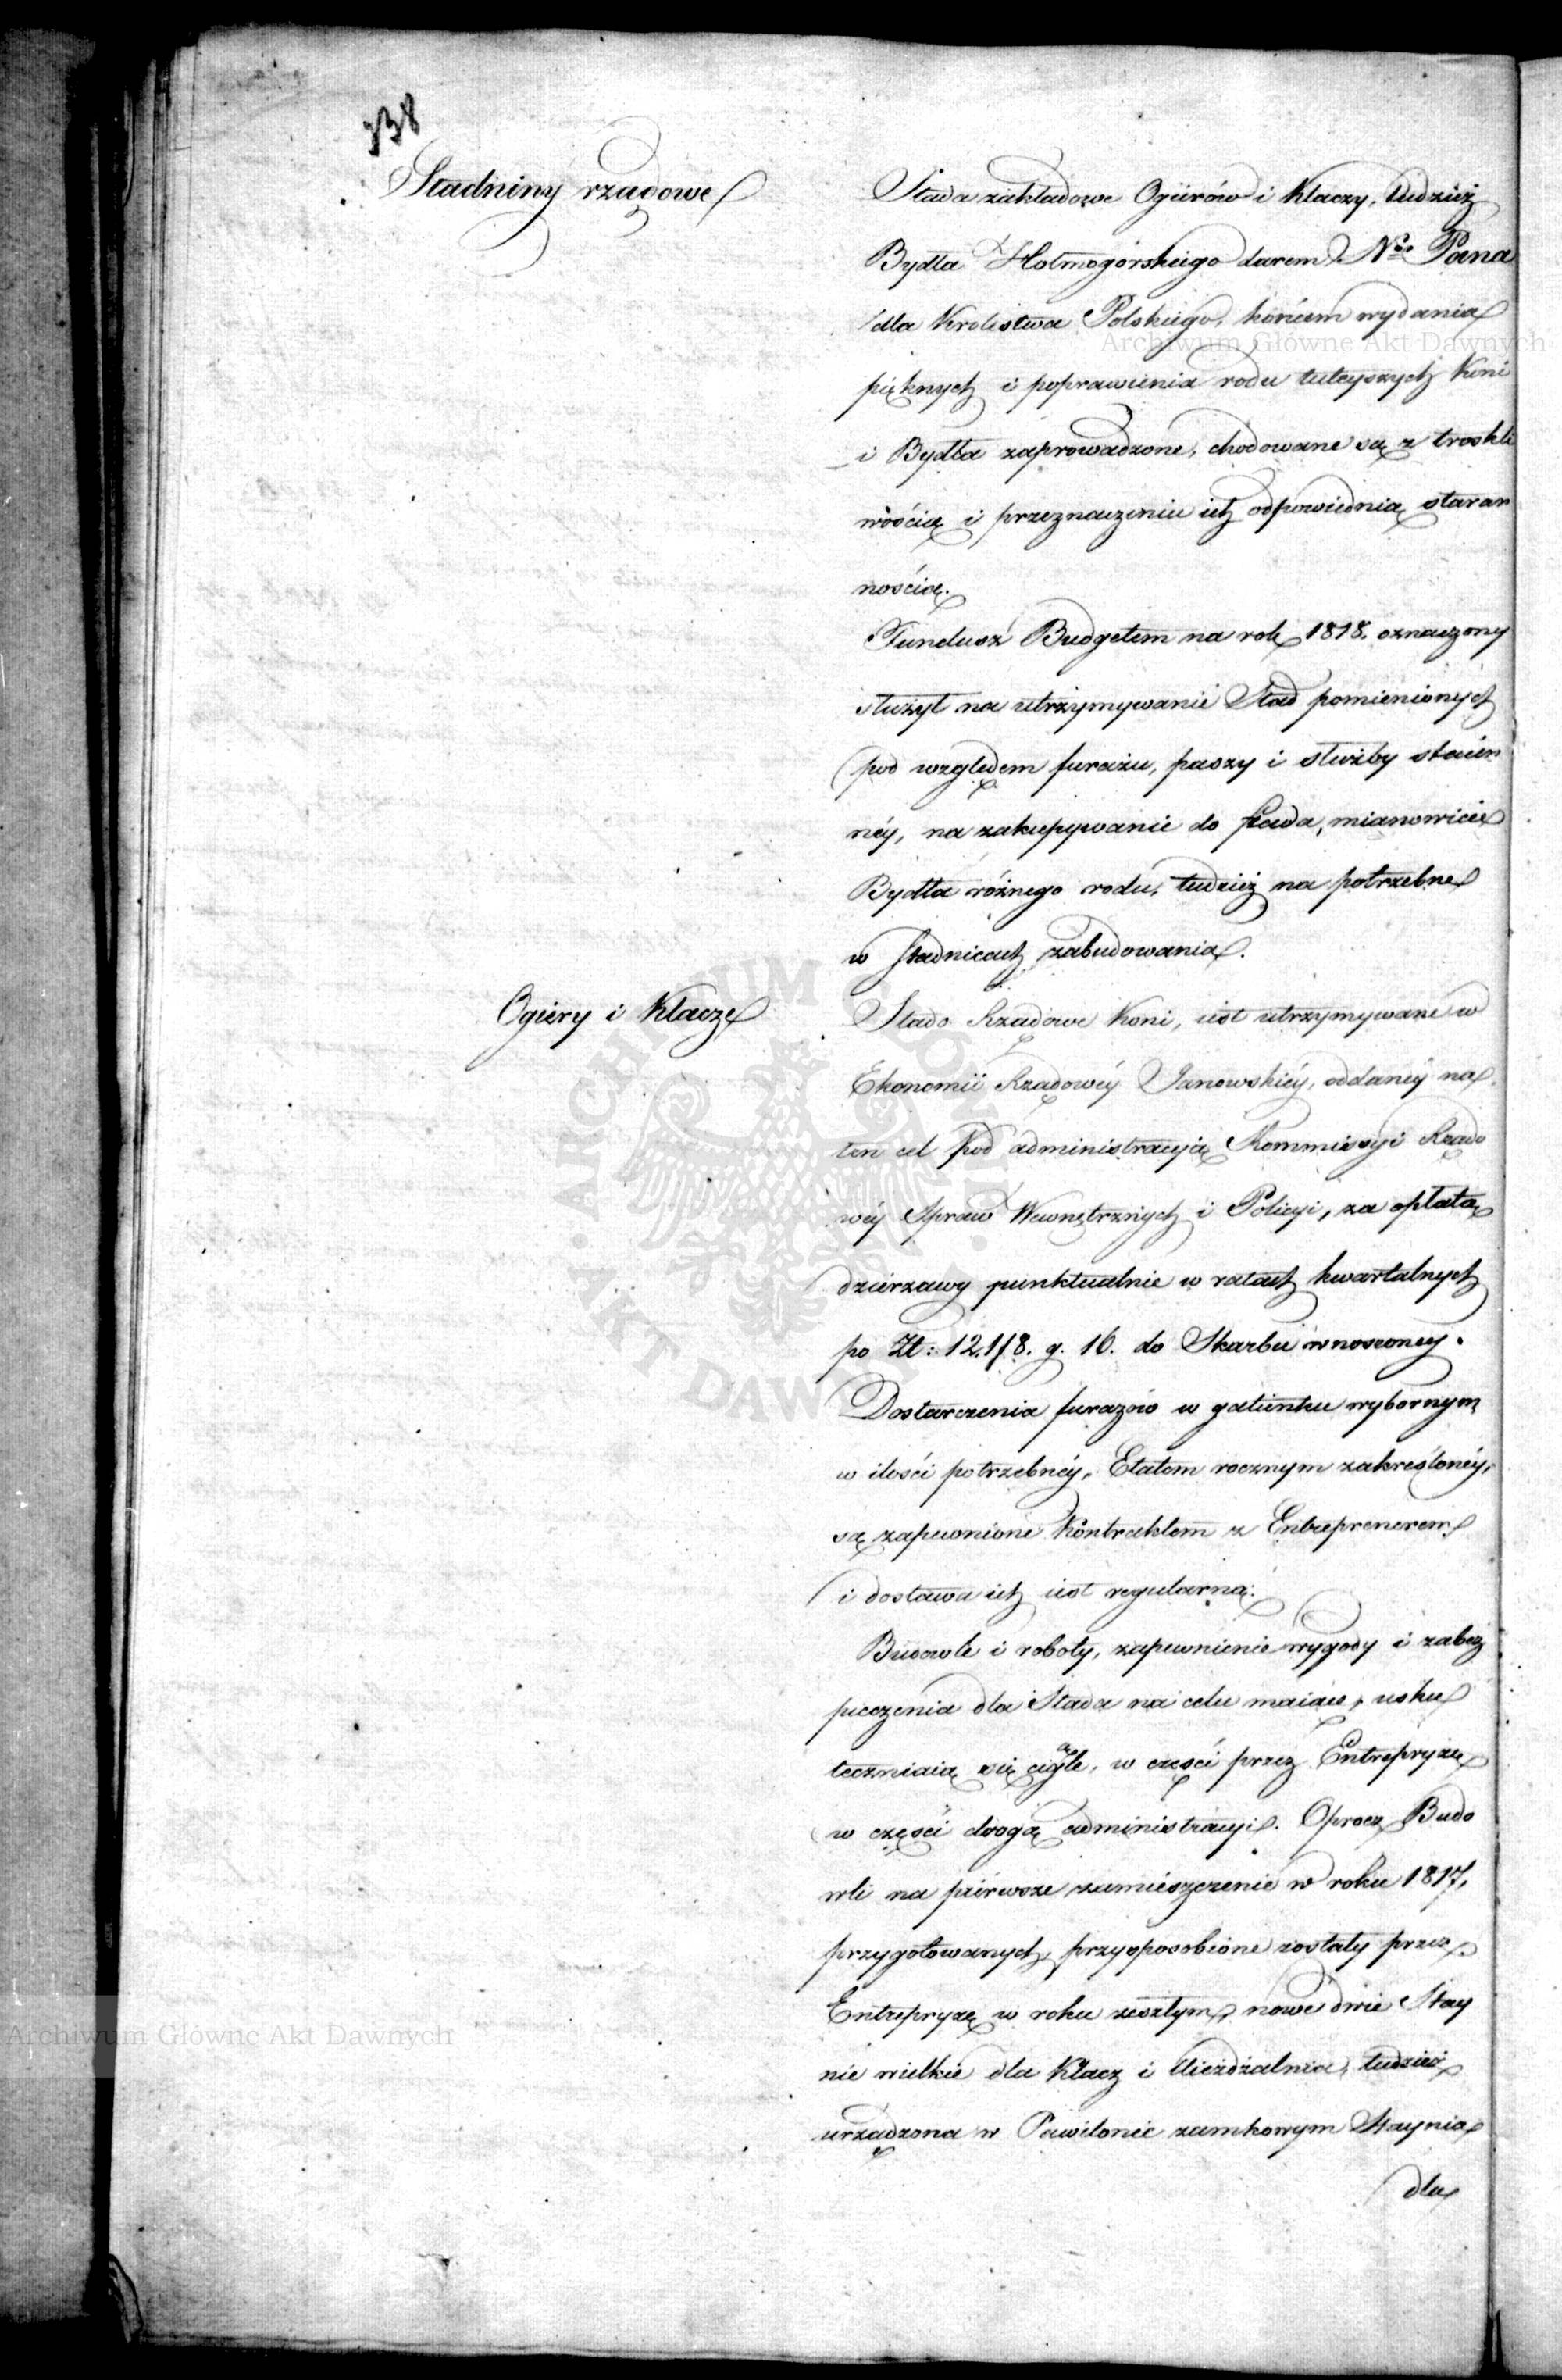 338
Stadniny rządowe
Stada zakładowe Ogierów i Klaczy, tudzież
Bydła Hołmogórskiego darem N. Pana
dla Krolestwa Polskiego, końcem wydania
pięknych i poprawienia rodu tuteyszych Koni
i Bydła zaprowadzone, chodowane są z troskli
wością i przeznaczeniu ich odpowiednią staran
nością.
Fundusz Budgetem na rok 1818. oznaczony
służył na utrzymywanie Stad pomienionych
pod względem furażu, paszy i służby staien
néy, na zakupywanie do stada, mianowicie
Bydła różnego rodu, tudzież na potrzebne
w stadnicach zabudowania.
Ogiery i Klacze
Stado Rządowe Koni, iest utrzymywane w
Ekonomii Rządowéy Janowskiéy, oddanéy na
ten cel pod administracyią Kommissyi Rządo
wéy Spraw Wewnętrznych i Policyi, za opłatą
dzierzawy punktualnie w ratach kwartalnych
po Zł: 12,178. g. 16. do Skarbu wnoszoney.
Dostarczenia furazów w gatunku wybornym
w ilości potrzebnéy, Etatem rocznym zakreślonéy,
są zapewnione Kontraktem z Entreprenerem
i dostawa ich iest regularną.
Budowle i roboty, zapewnienie wygody i zabez
pieczenia dla Stada na celu maiące, usku
teczniaią się ciągle, w części przez Entrepryzę
w części drogą administracyi. Oprocz Budo
wli na piérwsze zamiészczenie w roku 1817,
przygotowanych, przysposobione zostały przez
Entrepryzę w roku zeszłym, nowe dwie Stay
nie wielkie dla Klacz i Uieżdżalnia, tudzież
urządzona w Pawilonie zamkowym Staynia
dla
Archiwum Główne Akt Dawnych
Archiwum Główne Akt Dawnych
ARCHIWUM GŁÓWNE AKT DAWNYCH